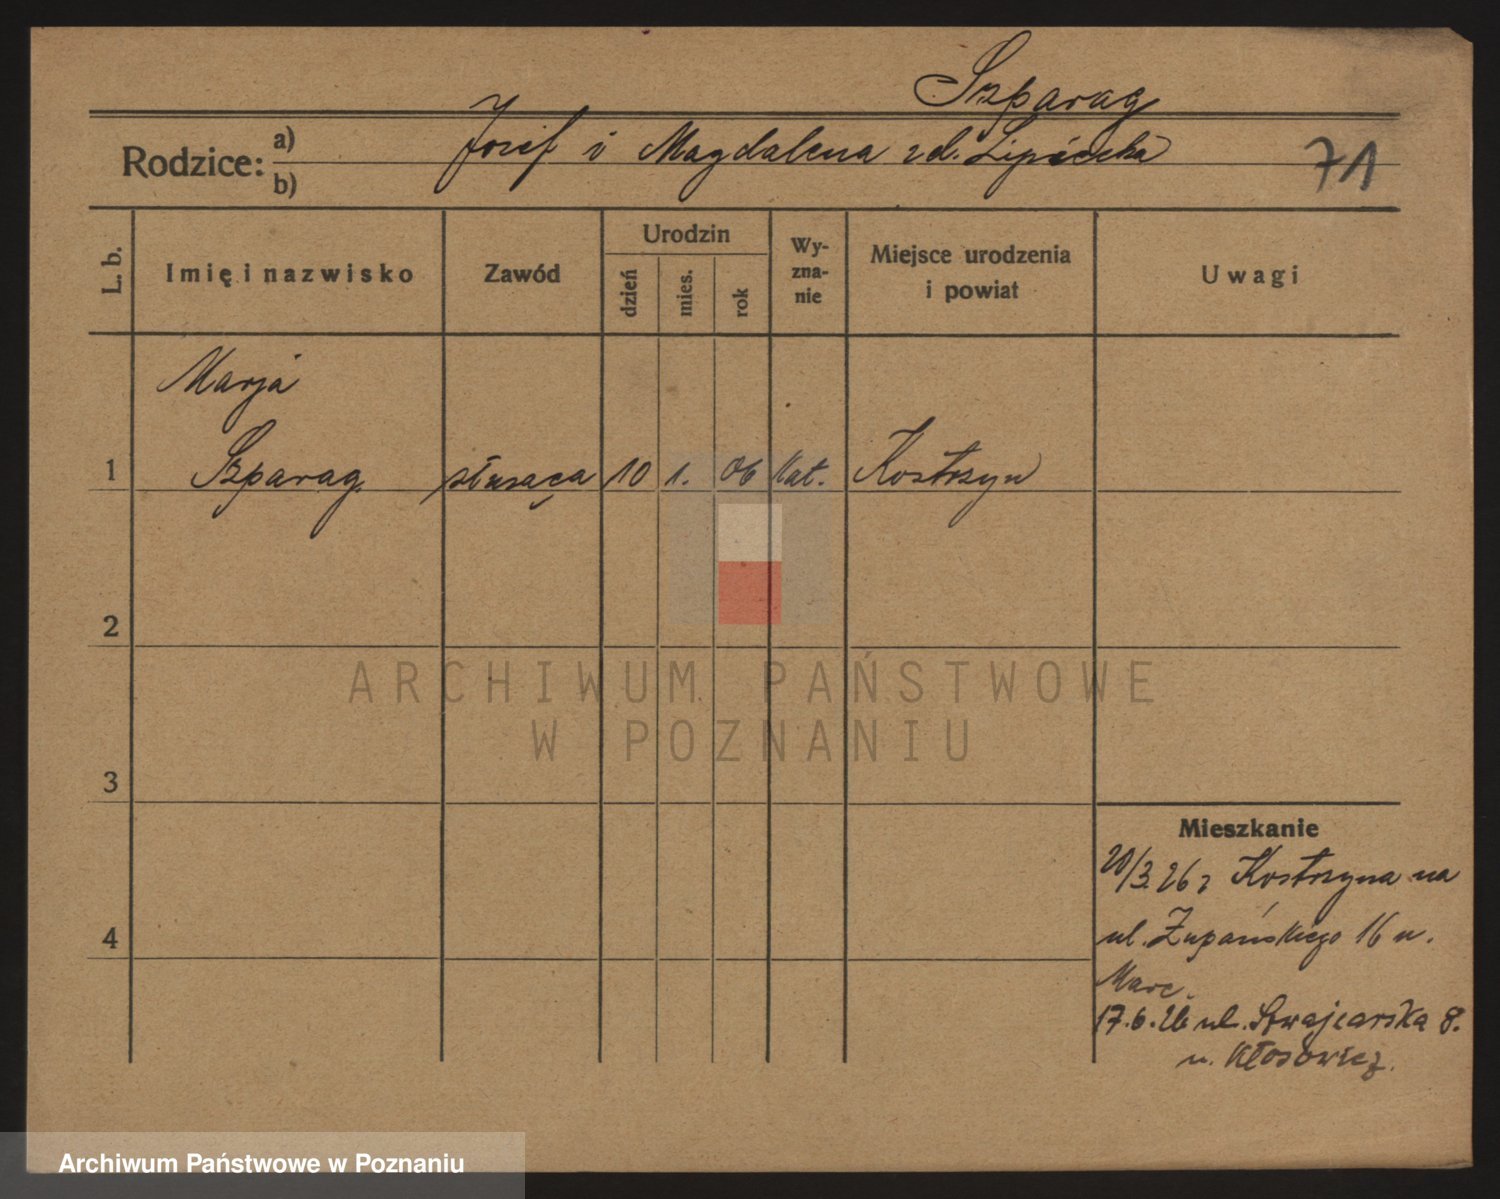 Szparag
Rodzice:
a) Józef i Magdalena zd. Lipiecka
b)
71
L. b.
Imię i nazwisko
Zawód
Urodzin
dzień
mies.
rok
Wy-
zna-
nie
Miejsce urodzenia
i powiat
Uwagi
Marja
1 Szparag służąca 10 1. 06 kat. Kostrzyn
2
3
4
ARCHIWUM PAŃSTWOWE
W POZNANIU
Mieszkanie
20/3.26 z Kostrzyna na
ul. Żupańskiego 16 u.
Marc.
17.6.26 ul. Szwajcarska 8.
u. Kłosowicz.
Archiwum Państwowe w Poznaniu